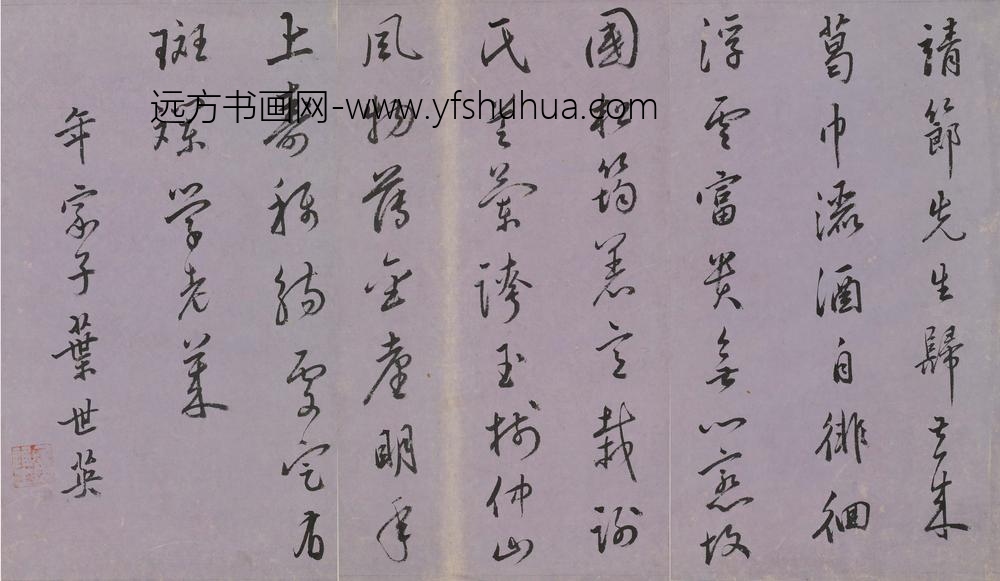 靖節先生歸去來
葛巾漉酒自徘徊
浮雲富貴無心戀故
國松筠著意栽謝
氏芝蘭誇玉樹仲山
風物舊金臺明年
上壽稱觴處定有
斑斕學老萊
年家子葉世英
远方书画网-www.yfshuhua.com